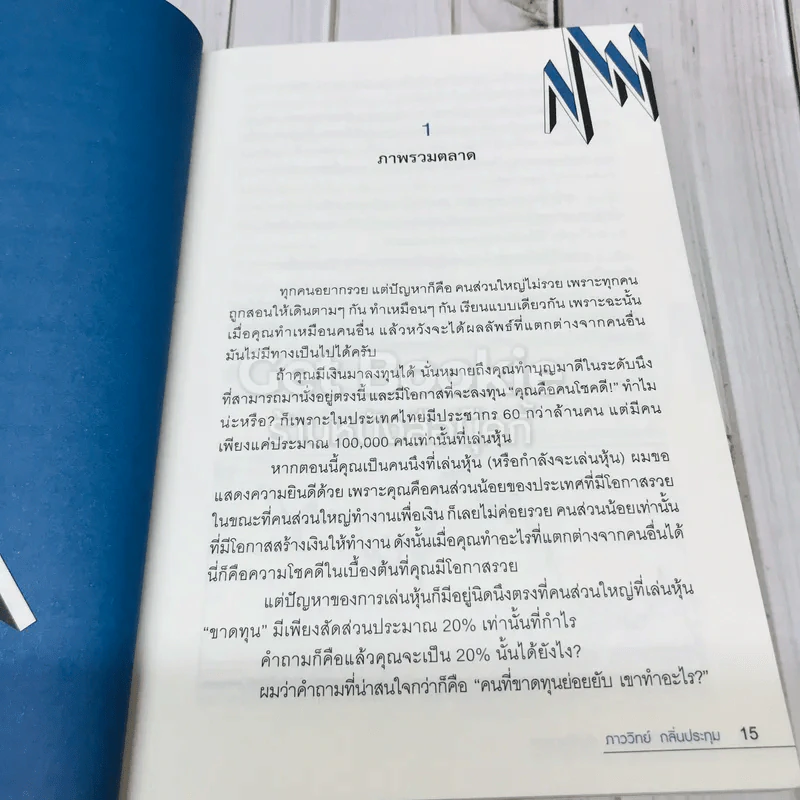 1
ภาพรวมตลาด
ทุกคนอยากรวย แต่ปัญหาก็คือ คนส่วนใหญ่ไม่รวย เพราะทุกคน
ถูกสอนให้เดินตามๆ กัน ทำเหมือนๆ กัน เรียนแบบเดียวกัน เพราะฉะนั้น
เมื่อคุณทำเหมือนคนอื่น แล้วหวังจะได้ผลลัพธ์ที่แตกต่างจากคนอื่น
มันไม่มีทางเป็นไปได้ครับ
ถ้าคุณมีเงินมาลงทุนได้ นั่นหมายถึงคุณทำบุญมาดีในระดับนึง
ที่สามารถมานั่งอยู่ตรงนี้ และมีโอกาสที่จะลงทุน "คุณคือคนโชคดี!" ทำไม
น่ะหรือ? ก็เพราะในประเทศไทยมีประชากร 60 กว่าล้านคน แต่มีคน
เพียงแค่ประมาณ 100,000 คนเท่านั้นที่เล่นหุ้น
หากตอนนี้คุณเป็นคนนึงที่เล่นหุ้น (หรือกำลังจะเล่นหุ้น) ผมขอ
แสดงความยินดีด้วย เพราะคุณคือคนส่วนน้อยของประเทศที่มีโอกาสรวย
ในขณะที่คนส่วนใหญ่ทำงานเพื่อเงิน ก็เลยไม่ค่อยรวย คนส่วนน้อยเท่านั้น
ที่มีโอกาสสร้างเงินให้ทำงาน ดังนั้นเมื่อคุณทำอะไรที่แตกต่างจากคนอื่นได้
นี่ก็คือความโชคดีในเบื้องต้นที่คุณมีโอกาสรวย
แต่ปัญหาของการเล่นหุ้นก็มีอยู่นิดนึงตรงที่คนส่วนใหญ่ที่เล่นหุ้น
"ขาดทุน" มีเพียงสัดส่วนประมาณ 20% เท่านั้นที่กำไร
คำถามก็คือแล้วคุณจะเป็น 20% นั้นได้ยังไง?
ผมว่าคำถามที่น่าสนใจกว่าก็คือ "คนที่ขาดทุนย่อยยับ เขาทำอะไร?"
ภาววิทย์ กลิ่นประทุม 15
Get Bookie
ร้านหนังสือออนไลน์